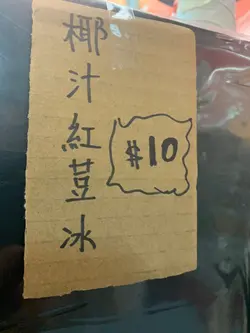 椰汁紅荳冰
$10